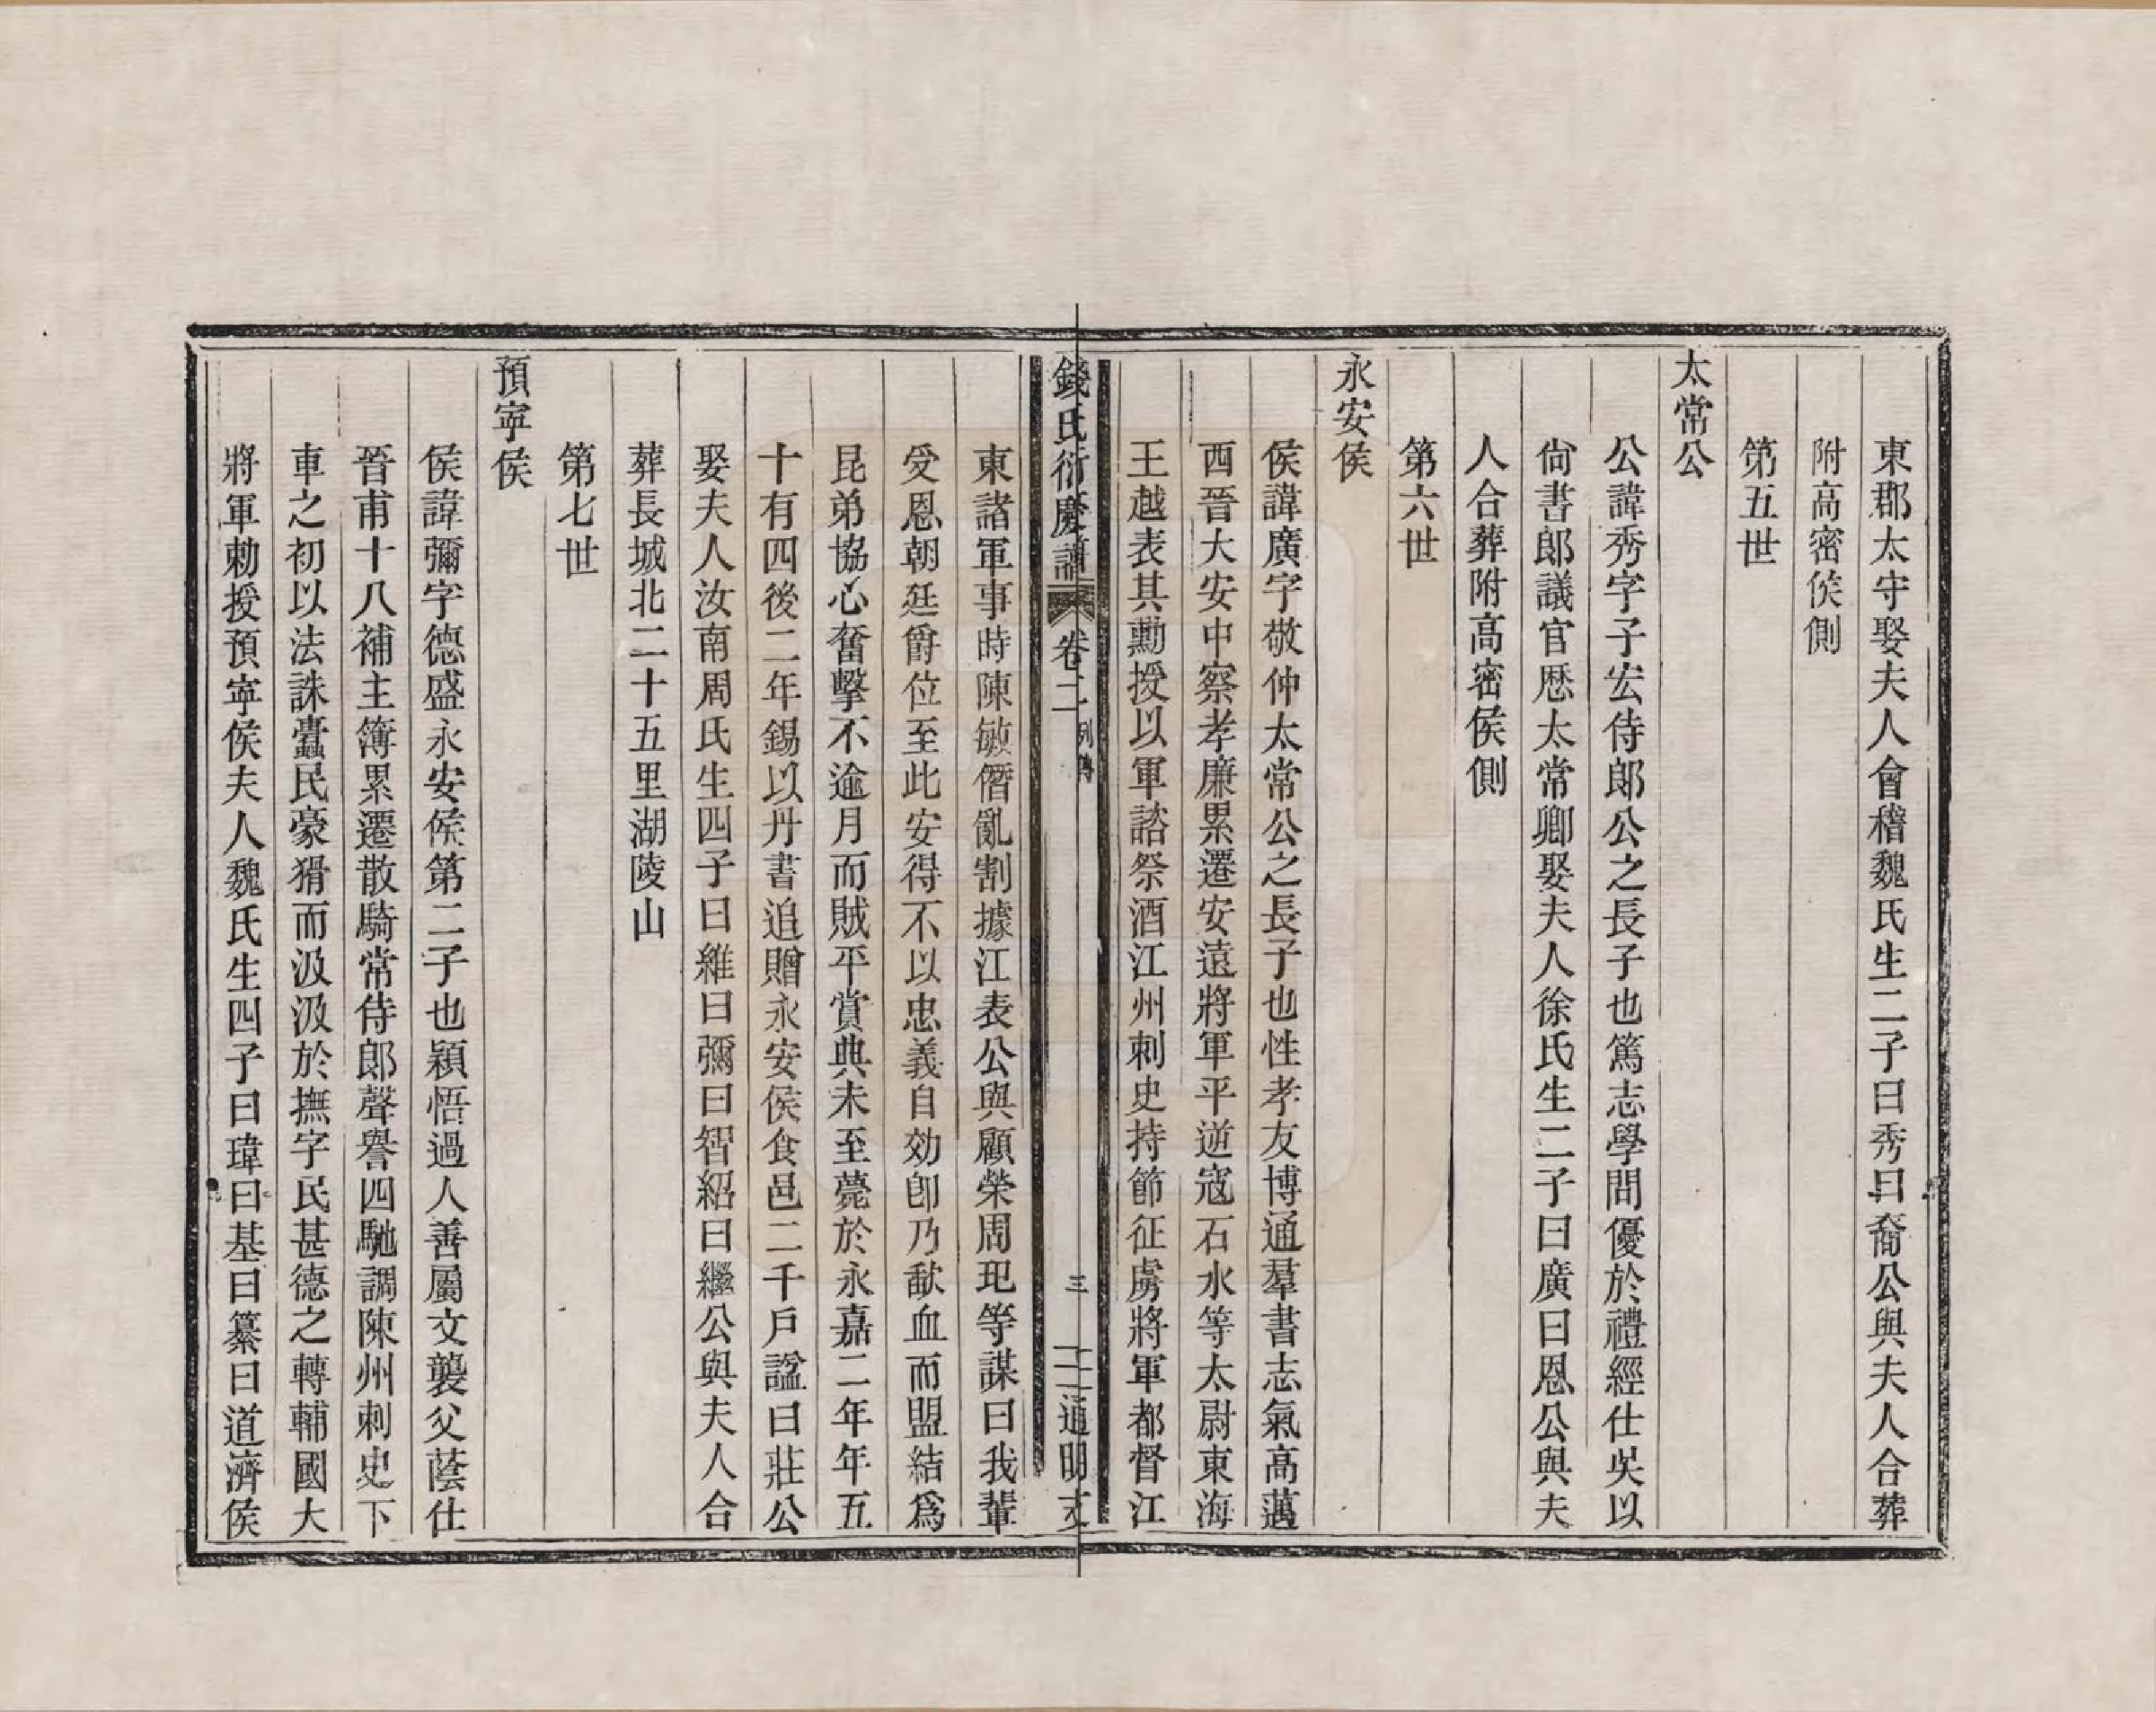 東郡太守娶夫人會稽魏氏生二子曰秀曰裔公與夫人合葬
附高密侯側
第五世
太常公
公諱秀字子宏侍郎公之長子也篤志學問優於禮經仕吳以
尙書郎議官歷太常卿娶夫人徐氏生二子曰廣曰恩公與夫
人合葬附高密侯側
第六世
永安侯
侯諱廣字敬仲太常公之長子也性孝友博通羣書志氣高邁
西晉大安中察孝廉累遷安遠將軍平逆寇石水等太尉東海
王越表其勳授以軍諮祭酒江州刺史持節征虜將軍都督江
錢氏衍慶譜 卷二 列傳 三 通明支
東諸軍事時陳敏僭亂割據江表公與顧榮周玘等謀曰我輩
受恩朝廷爵位至此安得不以忠義自効卽乃歃血而盟結爲
昆弟協心奮擊不逾月而賊平賞典未至薨於永嘉二年年五
十有四後二年錫以丹書追贈永安侯食邑二千戶諡曰莊公
娶夫人汝南周氏生四子曰維曰彌曰智紹曰繼公與夫人合
葬長城北二十五里湖陵山
第七世
預寧侯
侯諱彌字德盛永安侯第二子也穎悟過人善屬文襲父蔭仕
晉甫十八補主簿累遷散騎常侍郎聲譽四馳調陳州刺史下
車之初以法誅蠹民豪猾而汲汲於撫字民甚德之轉輔國大
將軍勅授預寧侯夫人魏氏生四子曰瑋曰基曰纂曰道濟侯